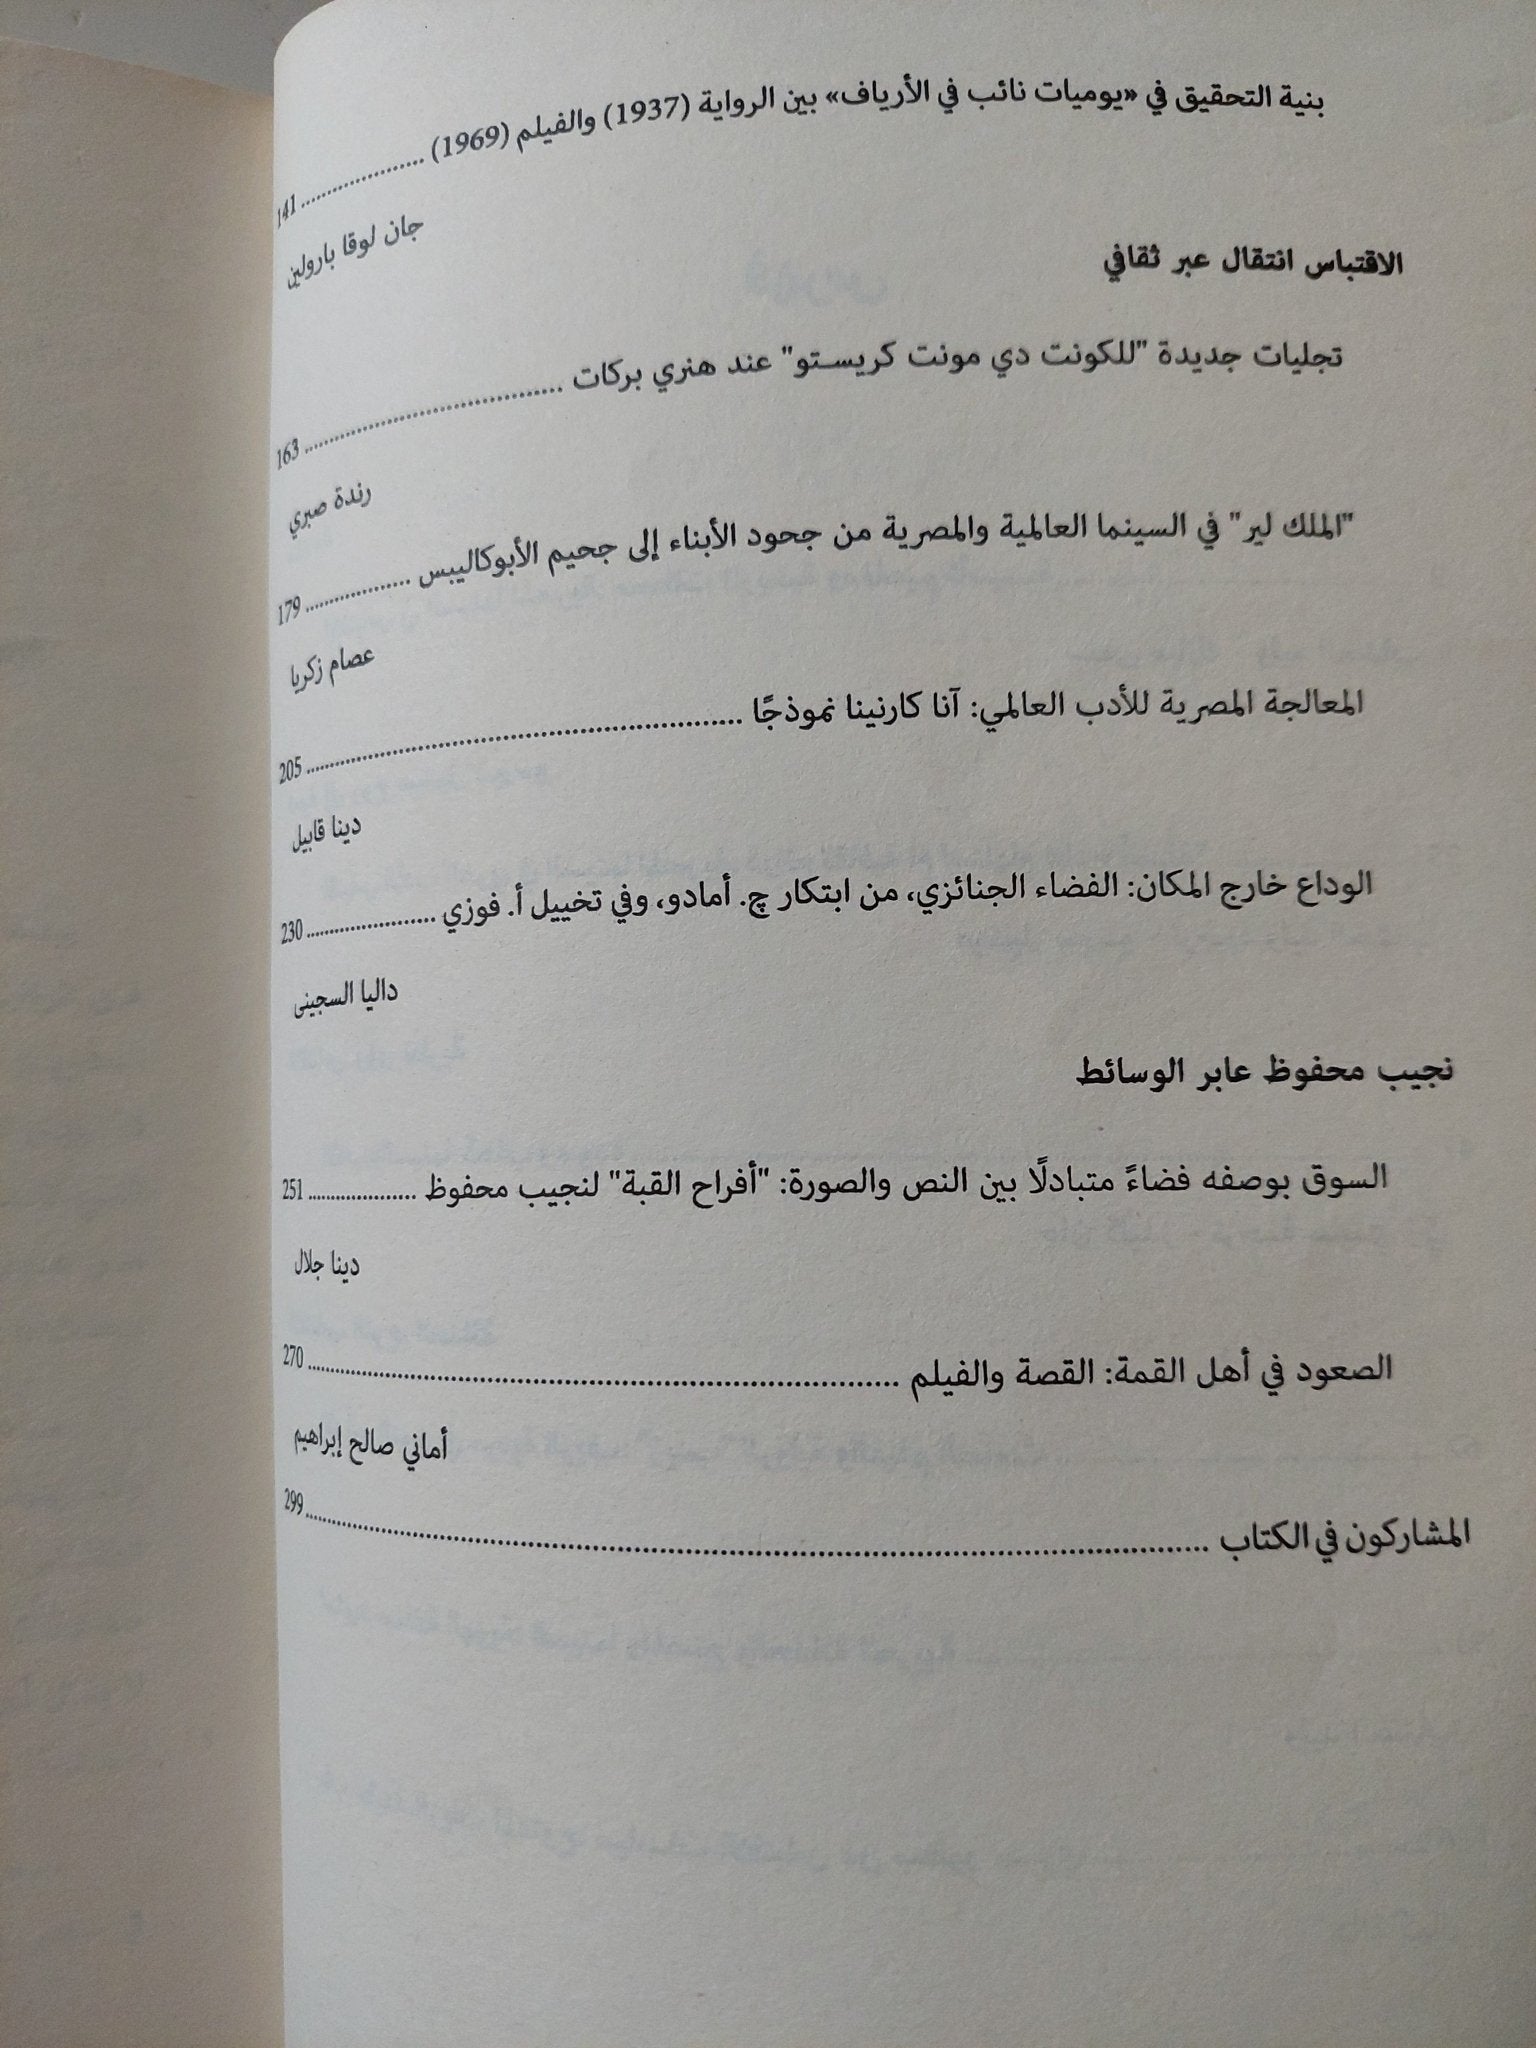 بنية التحقيق في «يوميات نائب في الأرياف» بين الرواية (1937) والفيلم (1969) .................... 141
جان لوقا بارولين
الاقتباس انتقال عبر ثقافي
تجليات جديدة "للكونت دي مونت كريستو" عند هنري بركات .................... 163
رندة صبري
"الملك لير" في السينما العالمية والمصرية من جحود الأبناء إلى جحيم الأبوكاليبس .................... 179
عصام زكريا
المعالجة المصرية للأدب العالمي: آنا كارنينا نموذجًا .................... 205
دينا قابيل
الوداع خارج المكان: الفضاء الجنائزي، من ابتكار چ. أمادو، وفي تخييل أ. فوزي .................... 230
داليا السجينى
نجيب محفوظ عابر الوسائط
السوق بوصفه فضاءً متبادلًا بين النص والصورة: "أفراح القبة" لنجيب محفوظ .................... 251
دينا جلال
الصعود في أهل القمة: القصة والفيلم .................... 270
أماني صالح إبراهيم
المشاركون في الكتاب .................... 299